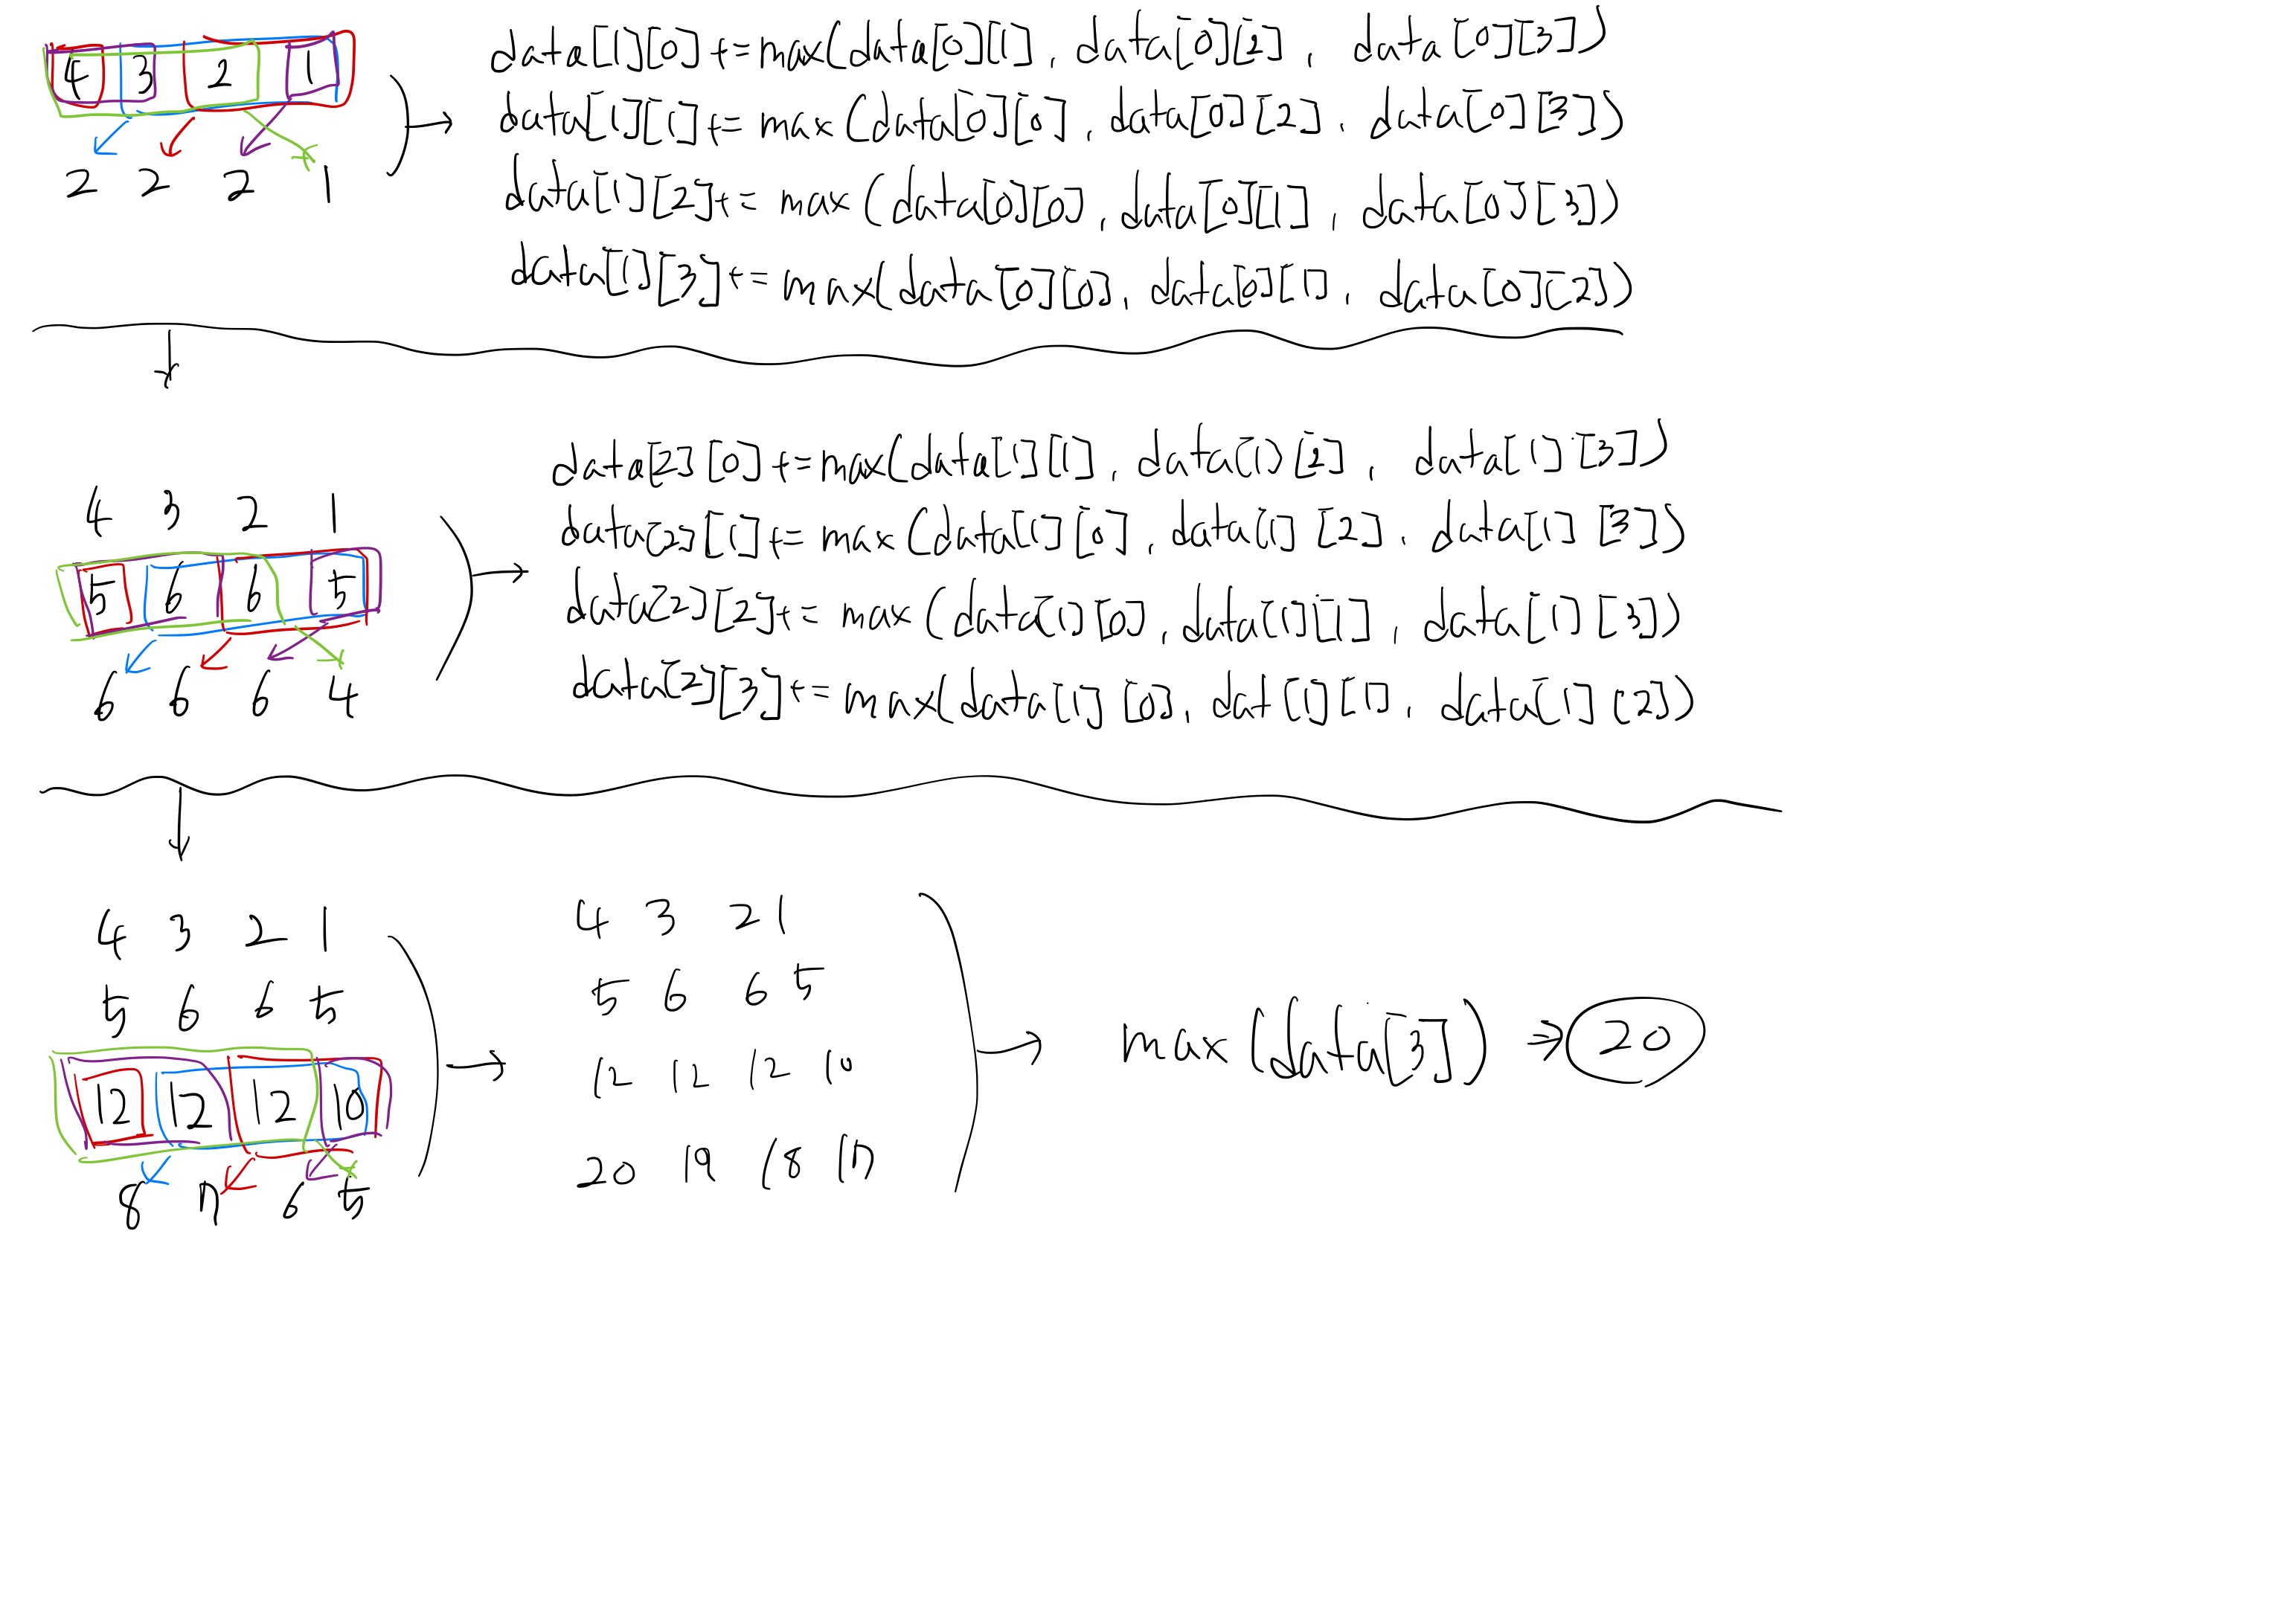 4 3 2 1
2 2 2 1
data[1][0] += max(data[0][1], data[0][2], data[0][3])
data[1][1] += max(data[0][0], data[0][2], data[0][3])
data[1][2] += max(data[0][0], data[0][1], data[0][3])
data[1][3] += max(data[0][0], data[0][1], data[0][2])
4 3 2 1
5 6 6 5
6 6 6 4
data[2][0] += max(data[1][1], data[1][2], data[1][3])
data[2][1] += max(data[1][0], data[1][2], data[1][3])
data[2][2] += max(data[1][0], data[1][1], data[1][3])
data[2][3] += max(data[1][0], dat[1][1], data[1][2])
4 3 2 1
5 6 6 5
12 12 12 10
8 7 6 5
4 3 2 1
5 6 6 5
12 12 12 10
20 19 18 17
max(data[3]) → 20